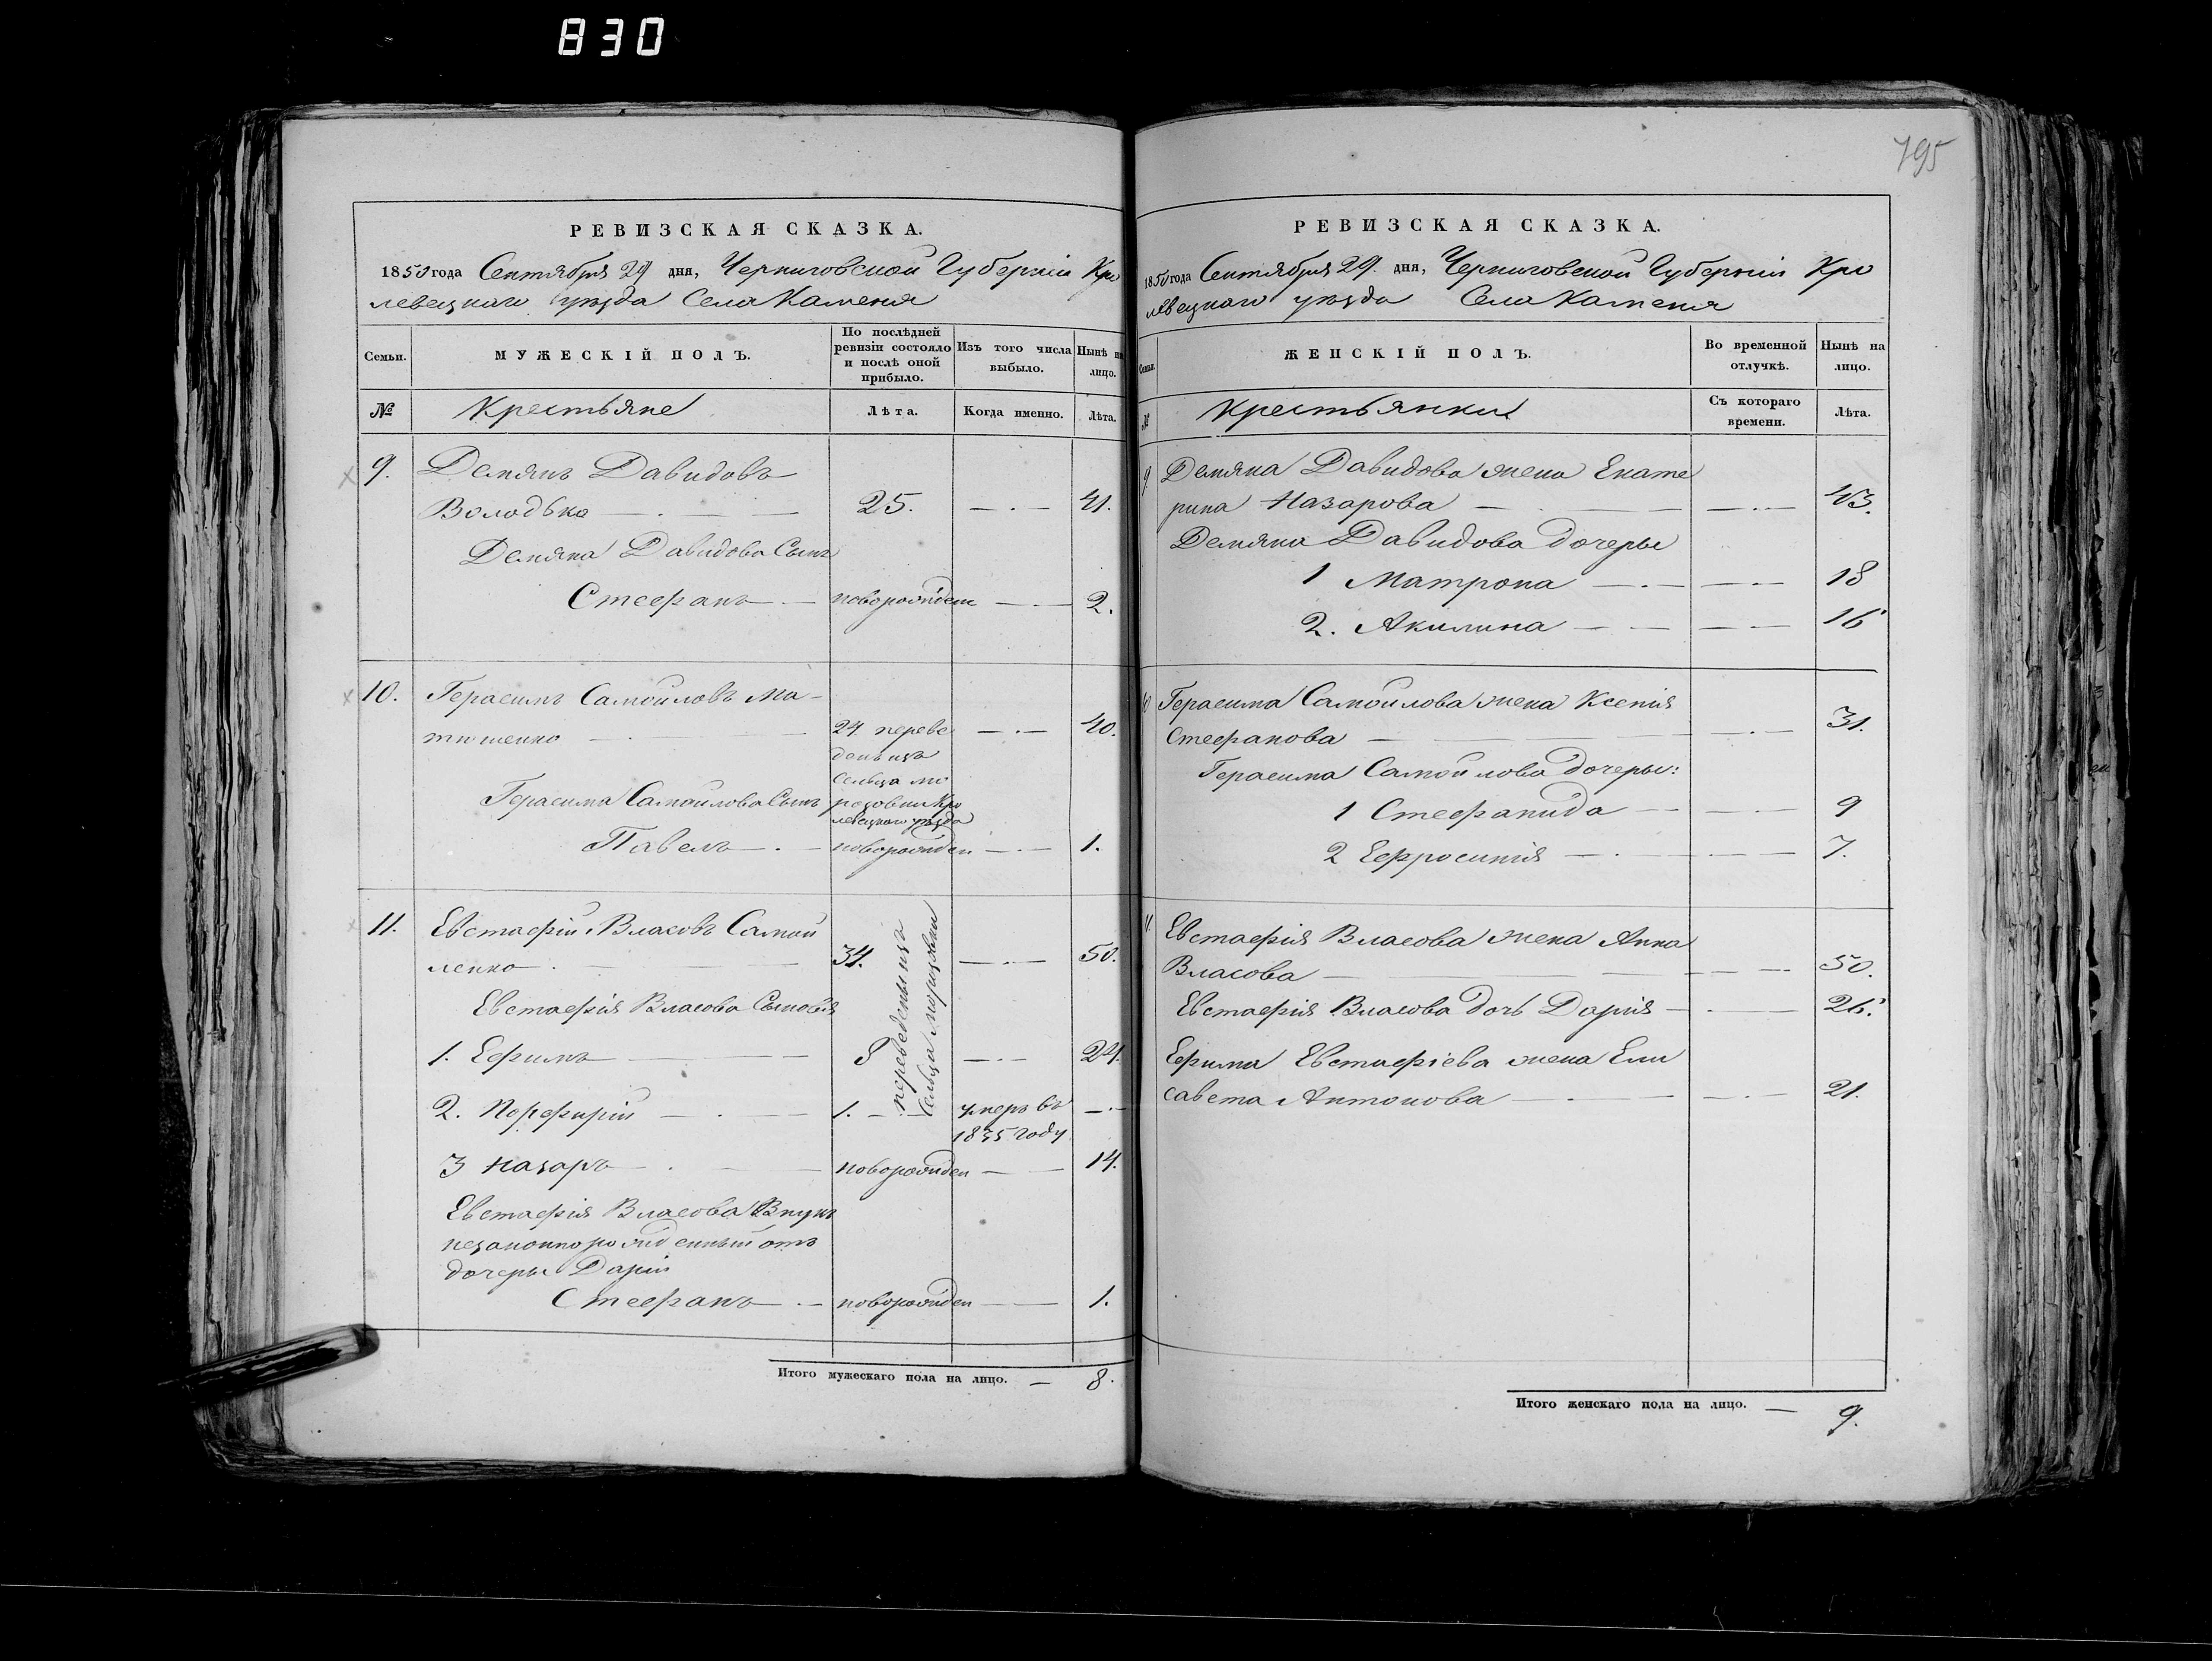 830
795
РЕВИЗСКАЯ СКАЗКА.
1850 года Сентября 29 дня, Черниговской Губернии Кро
левецкаго уѣзда Села Каменя
Семьи.
МУЖЕСКІЙ ПОЛЪ.
По послѣдней ревизіи состояло и послѣ оной прибыло.
Изъ того числа выбыло.
Нынѣ на лицо.
№
Крестьяне
Лѣта.
Когда именно.
Лѣта.
9. Демянъ Давидовъ
Володько 25. 41.
Демяна Давидова Сынъ
Стефанъ новорожден 2.
10. Герасимъ Самойловъ Ма-
тюшенко 24 переве 40.
денъ изъ
Сельца
Герасима Самойлова Сынъ Кро
левецкаго уѣзда
Павелъ новорожден 1.
11. Евстафій Власовъ Самой
ленко 34. 50.
переведены изъ
Сельца
Евстафія Власова Сыновья
1. Ефимъ 8 24.
2. Порфирій 1. умеръ въ
1835 году
3 Назаръ новорожден 14.
Евстафія Власова Внукъ
незаконнорожденный отъ
дочеры Даріи
Стефанъ новорожден 1.
Итого мужескаго пола на лицо. 8.
РЕВИЗСКАЯ СКАЗКА.
1850 года Сентября 29. дня, Черниговской Губерніи Кро
левецкаго уѣзда Села Каменя
Семьи.
ЖЕНСКІЙ ПОЛЪ.
Во временной отлучкѣ.
Нынѣ на лицо.
№
Крестьянки
Съ котораго времени.
Лѣта.
9 Демяна Давидова жена Екате
рина Назарова 43.
Демяна Давидова дочеры
1 Матрона 18
2. Акилина 16
10 Герасима Самойлова жена Ксенія
Стефанова 31.
Герасима Самойлова дочеры:
1 Стефанида 9
2 Ефросинія 7.
11. Евстафія Власова жена Анна
Власова 50.
Евстафія Власова дочь Дарія 26.
Ефима Евстафіева жена Ели
савета Антонова 21.
Итого женскаго пола на лицо. 9.